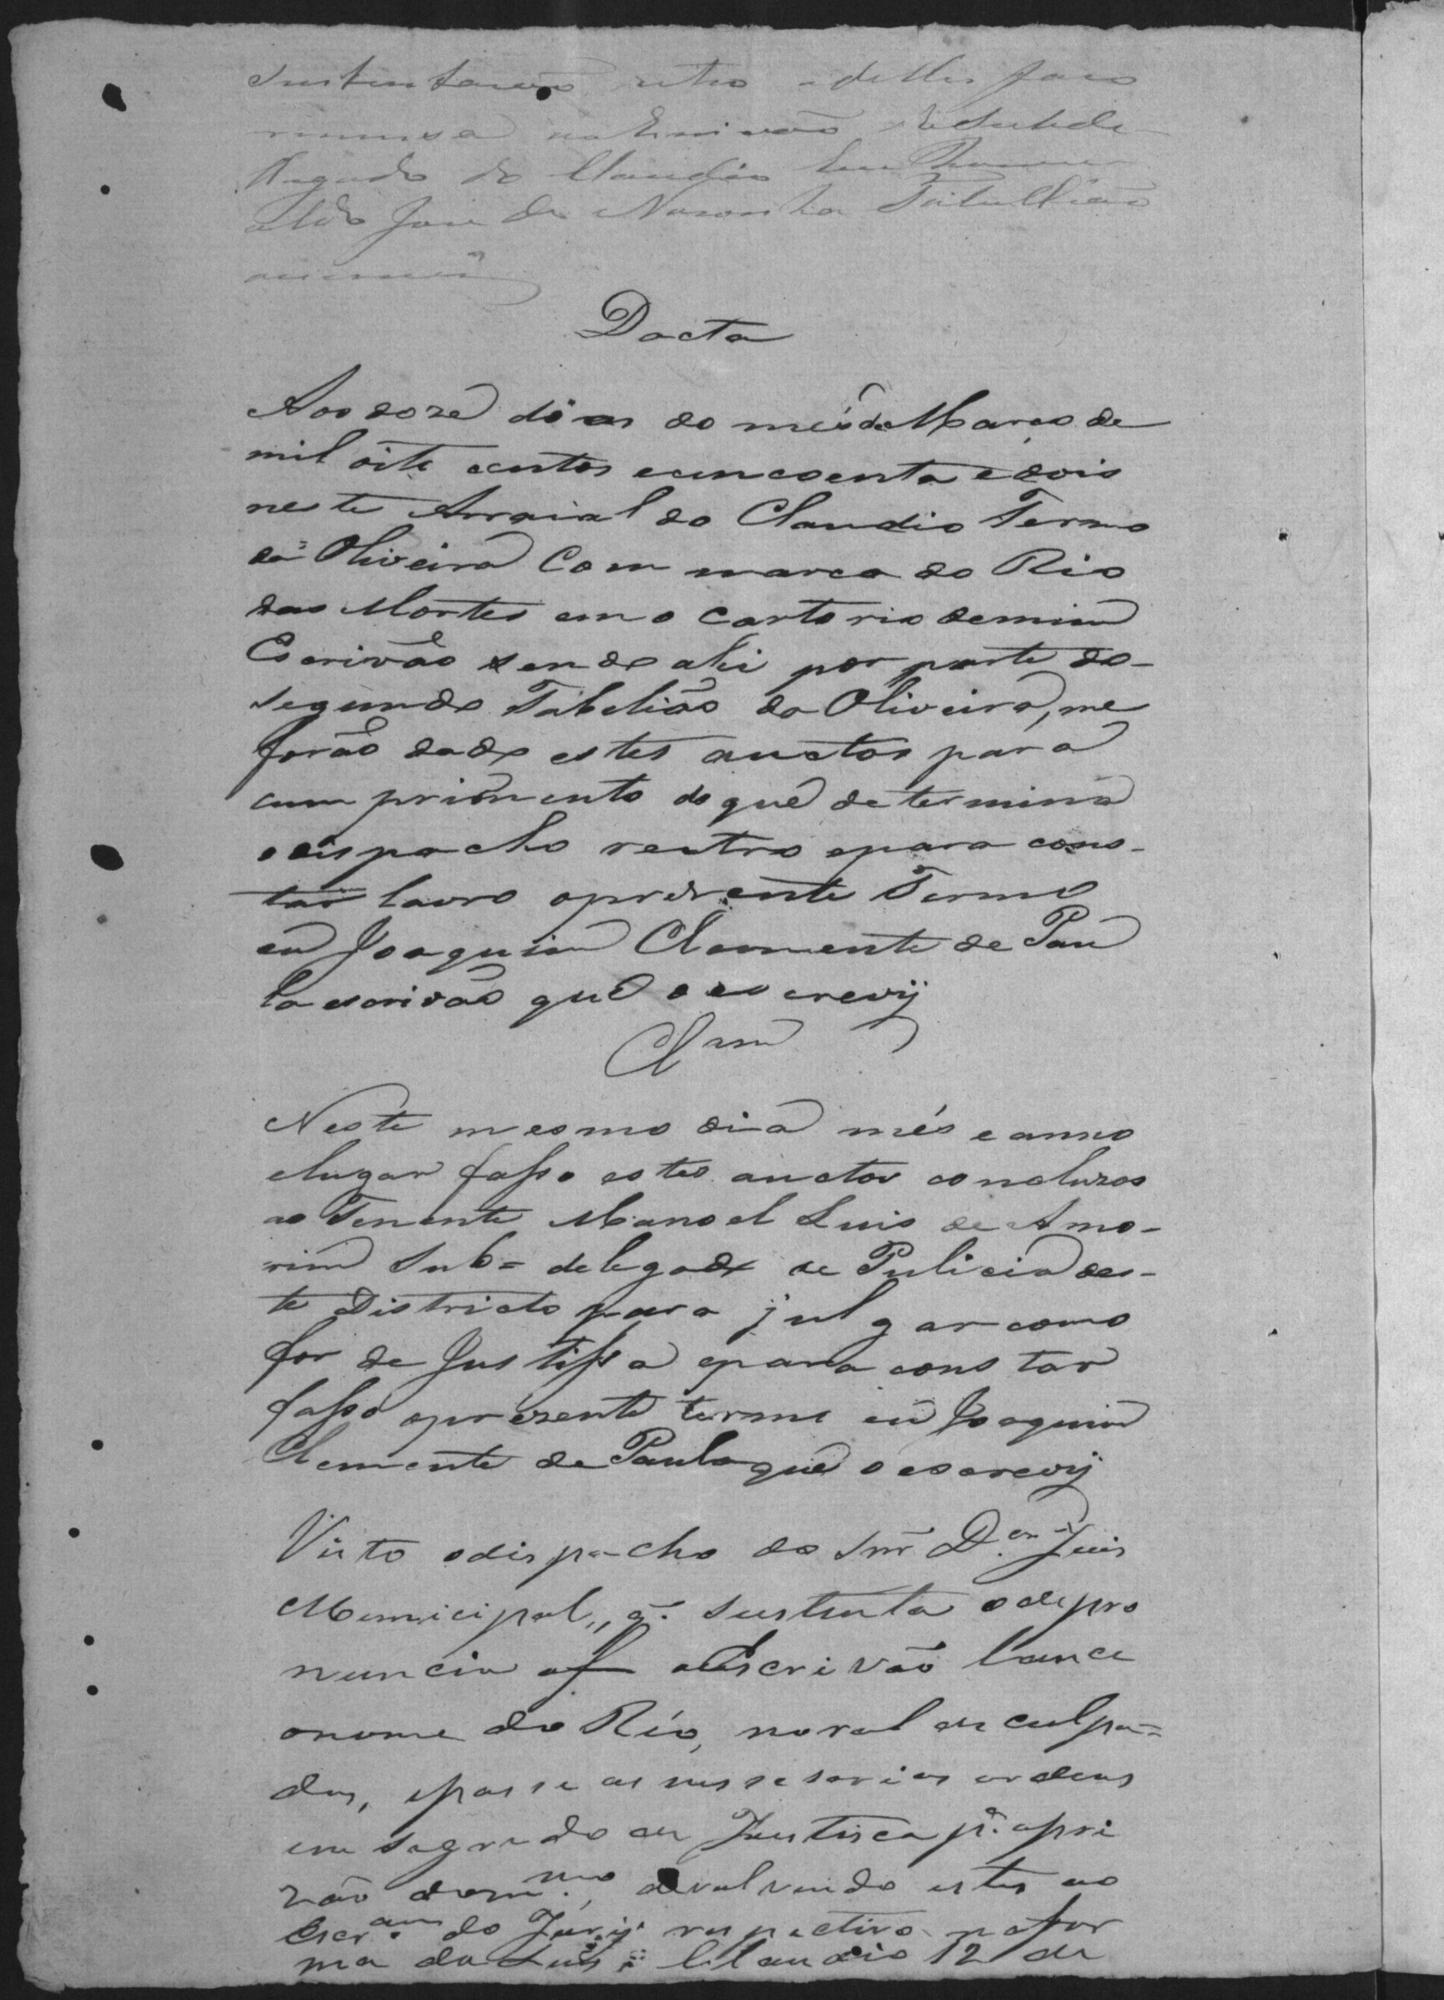 sustentacaõ retro e delles faco
remmesa ao Escrivaõ do Subde
legado do Claudio Eu
José de Noronha Tabelliaõ

Dacta
Aos doze dias do més de Março de
mil oite centos e cincoenta e dois
neste Arraial do Claudio Termo
da Oliveira Com marca do Rio
das Mortes em o cartorio de mim
Escrivão sendo ahi por parte do-
segundo Tabelião da Oliveira, me
forão dado estes auctos para
cumprimento do que determina
o dispacho reutro epara cons-
tar lavro oprezente Termo
eu Joaquim Clemente de Pau
la escrivão que o escrevij
Clsm
Neste mesmo dia més e anno
elugar fasso estes auctos concluzos
ao Tenente Manoel Luis de Amo-
rim Sub= delegado de Pulicia des-
te Districto para julgar como
for de Justissa epara constar
fasso oprezente termo eu Joaquim
Clemente de Paula que o escrevij
Visto odispacho do Snr̃ D.or Juis
Municipal,, q̃. sustenta o depro
nuncia af oEscrivaõ lance
onome do Rio, no rol de culpa=
dos, epasse as nessesarias ordens
em segredo de Justiça p.a apri
zaõ do m.mo, devolvendo estes ao
Escr.am do Jury respectivo na for
ma da Lei: Claudio 12 de